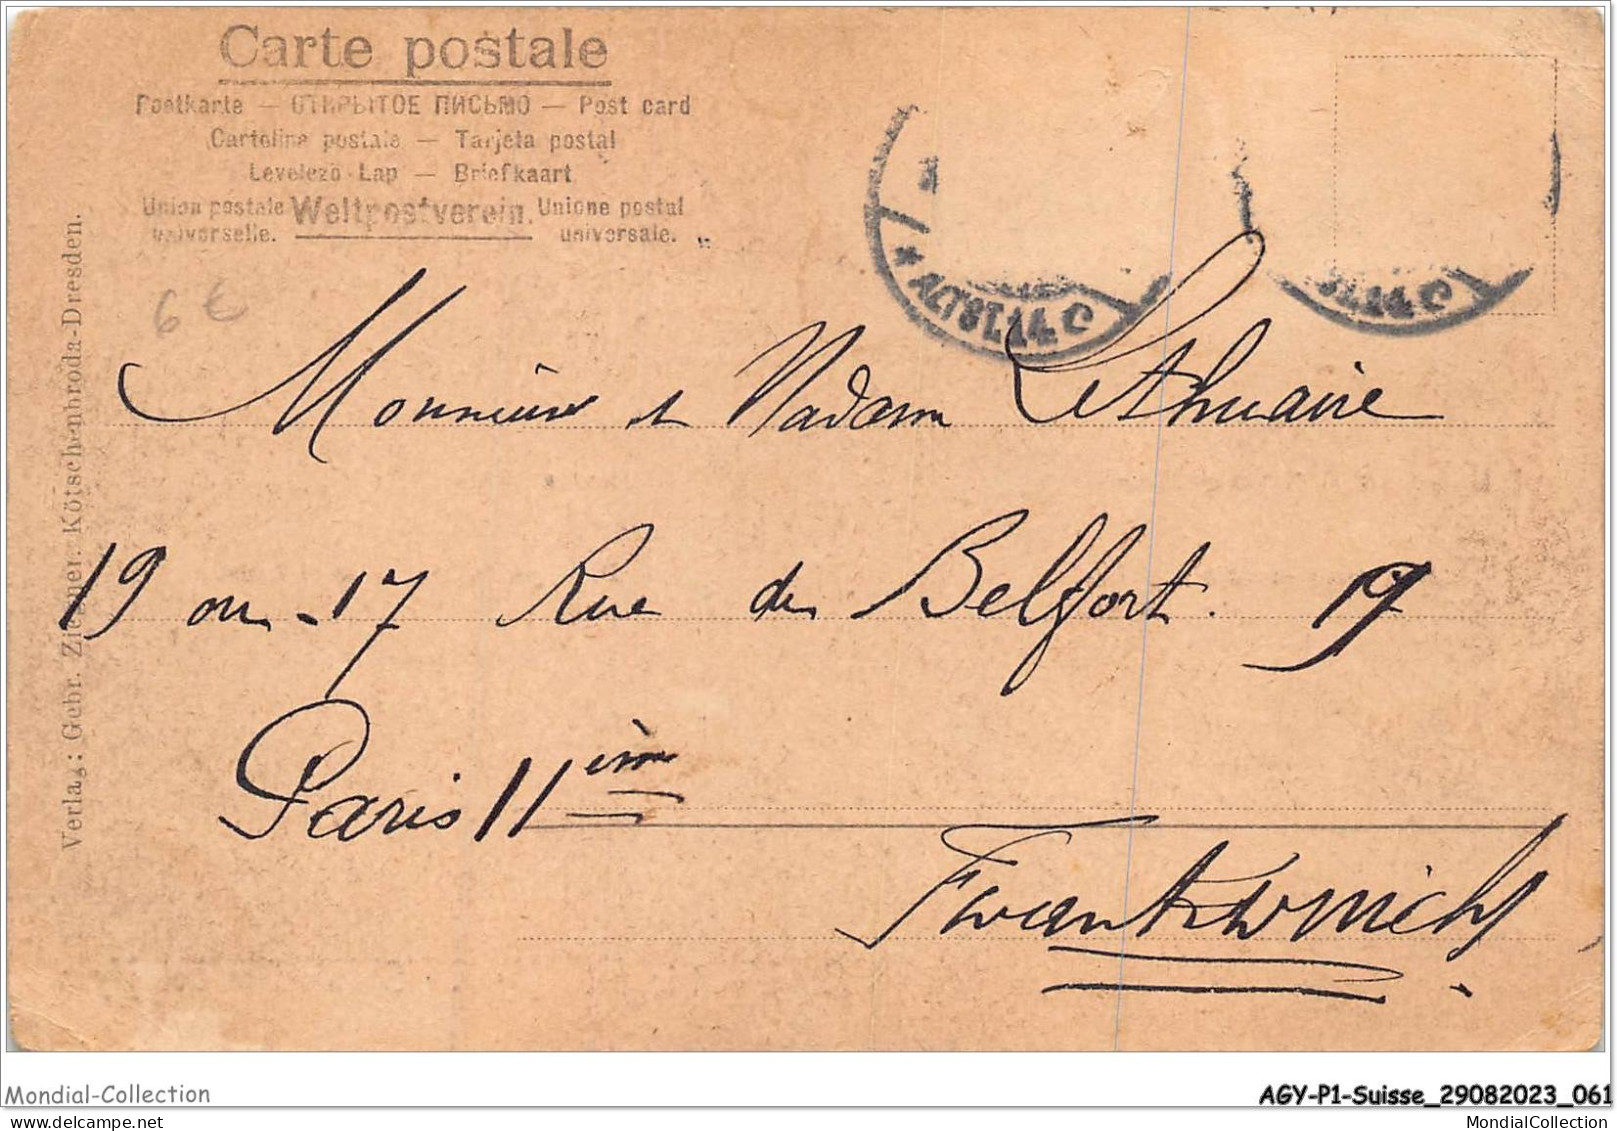 Carte postale
Postkarte — ОТКРЫТОЕ ПИСЬМО — Post card
Cartolina postale — Tarjeta postal
Levelezö Lap — Briefkaart
Union postale universelle. Weltpostverein. Unione postal universale.
Verlag: Gebr. Ziegner. Kötschenbroda-Dresden.
6 €
* ALTST.14 c
ST.14 c
Monsieur et Madame Lethuaire
19 ou 17 Rue de Belfort. 19
Paris 11ème
Frankreich.
Mondial-Collection
AGY-P1-Suisse_29082023_061
MondialCollection